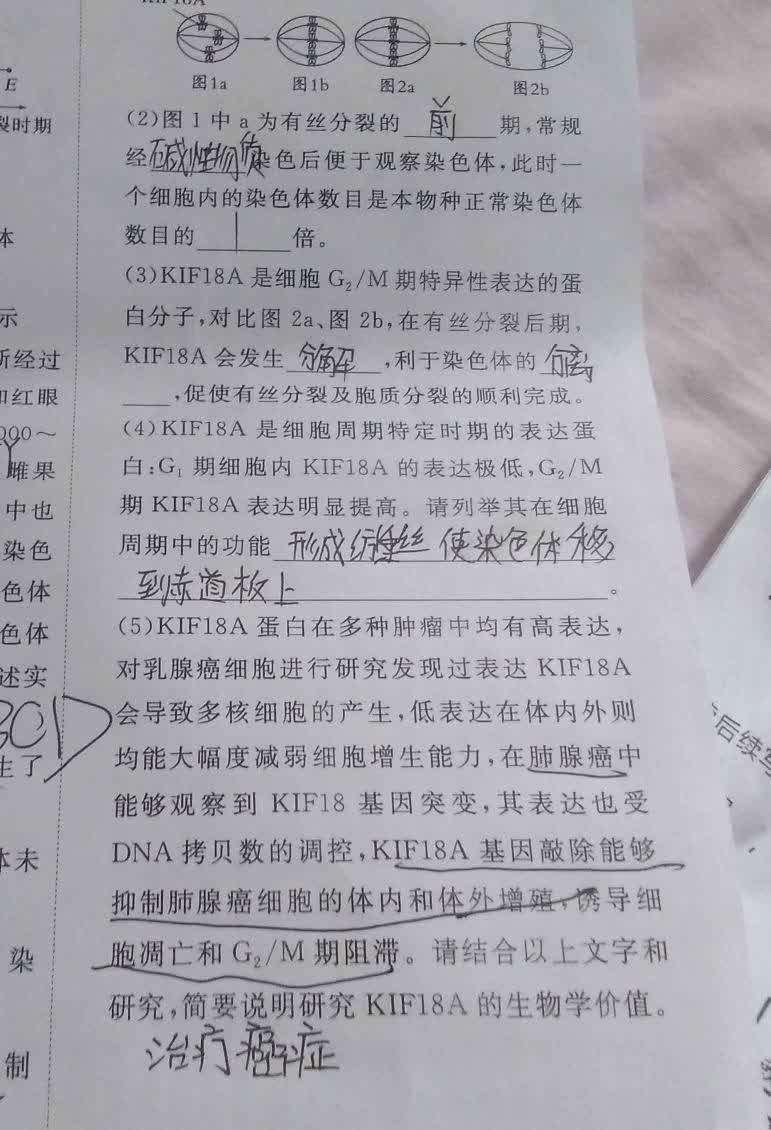 KIF18A
图1a 图1b 图2a 图2b
(2)图 1 中 a 为有丝分裂的 前 期,常规
经碱性物质染色后便于观察染色体,此时一
个细胞内的染色体数目是本物种正常染色体
数目的 1 倍。
(3)KIF18A 是细胞 G₂/M 期特异性表达的蛋
白分子,对比图 2a、图 2b,在有丝分裂后期,
KIF18A 会发生 分解 ,利于染色体的 分离
,促使有丝分裂及胞质分裂的顺利完成。
(4)KIF18A 是细胞周期特定时期的表达蛋
白:G₁ 期细胞内 KIF18A 的表达极低,G₂/M
期 KIF18A 表达明显提高。请列举其在细胞
周期中的功能 形成纺锤丝 使染色体移
到赤道板上 。
(5)KIF18A 蛋白在多种肿瘤中均有高表达,
对乳腺癌细胞进行研究发现过表达 KIF18A
会导致多核细胞的产生,低表达在体内外则
均能大幅度减弱细胞增生能力,在肺腺癌中
能够观察到 KIF18 基因突变,其表达也受
DNA 拷贝数的调控,KIF18A 基因敲除能够
抑制肺腺癌细胞的体内和体外增殖,诱导细
胞凋亡和 G₂/M 期阻滞。请结合以上文字和
研究,简要说明研究 KIF18A 的生物学价值。
治疗癌症
E
裂时期
体
示
所经过
和红眼
000～
雌果
中也
染色
色体
色体
述实
生了
体未
染
制
后续写